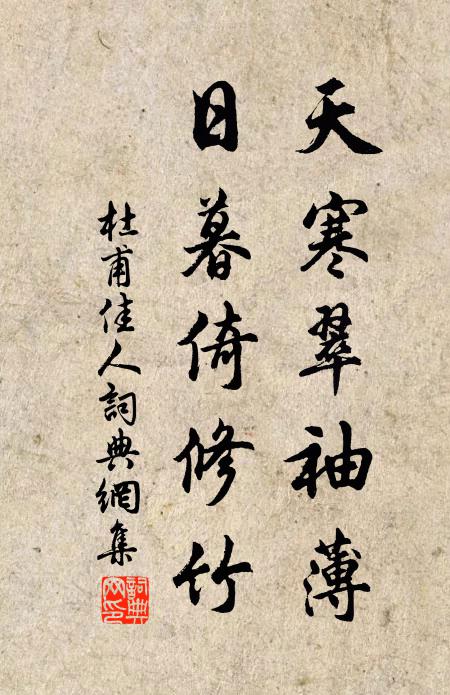 天寒翠袖薄
日暮倚修竹
杜甫佳人詞典網集
詞典網印